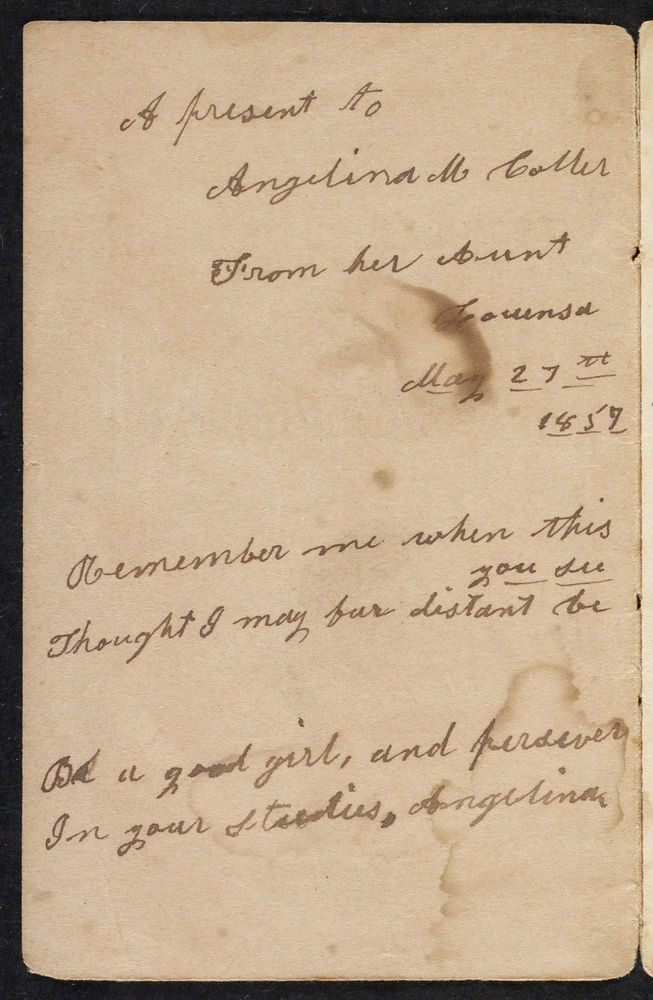 A present to
Angelina M Coller
From her Aunt
Louensa
May 27th
1857
Remember me when this
you see
Thought I may far distant be
Be a good girl, and persever
In your studies, Angelina,